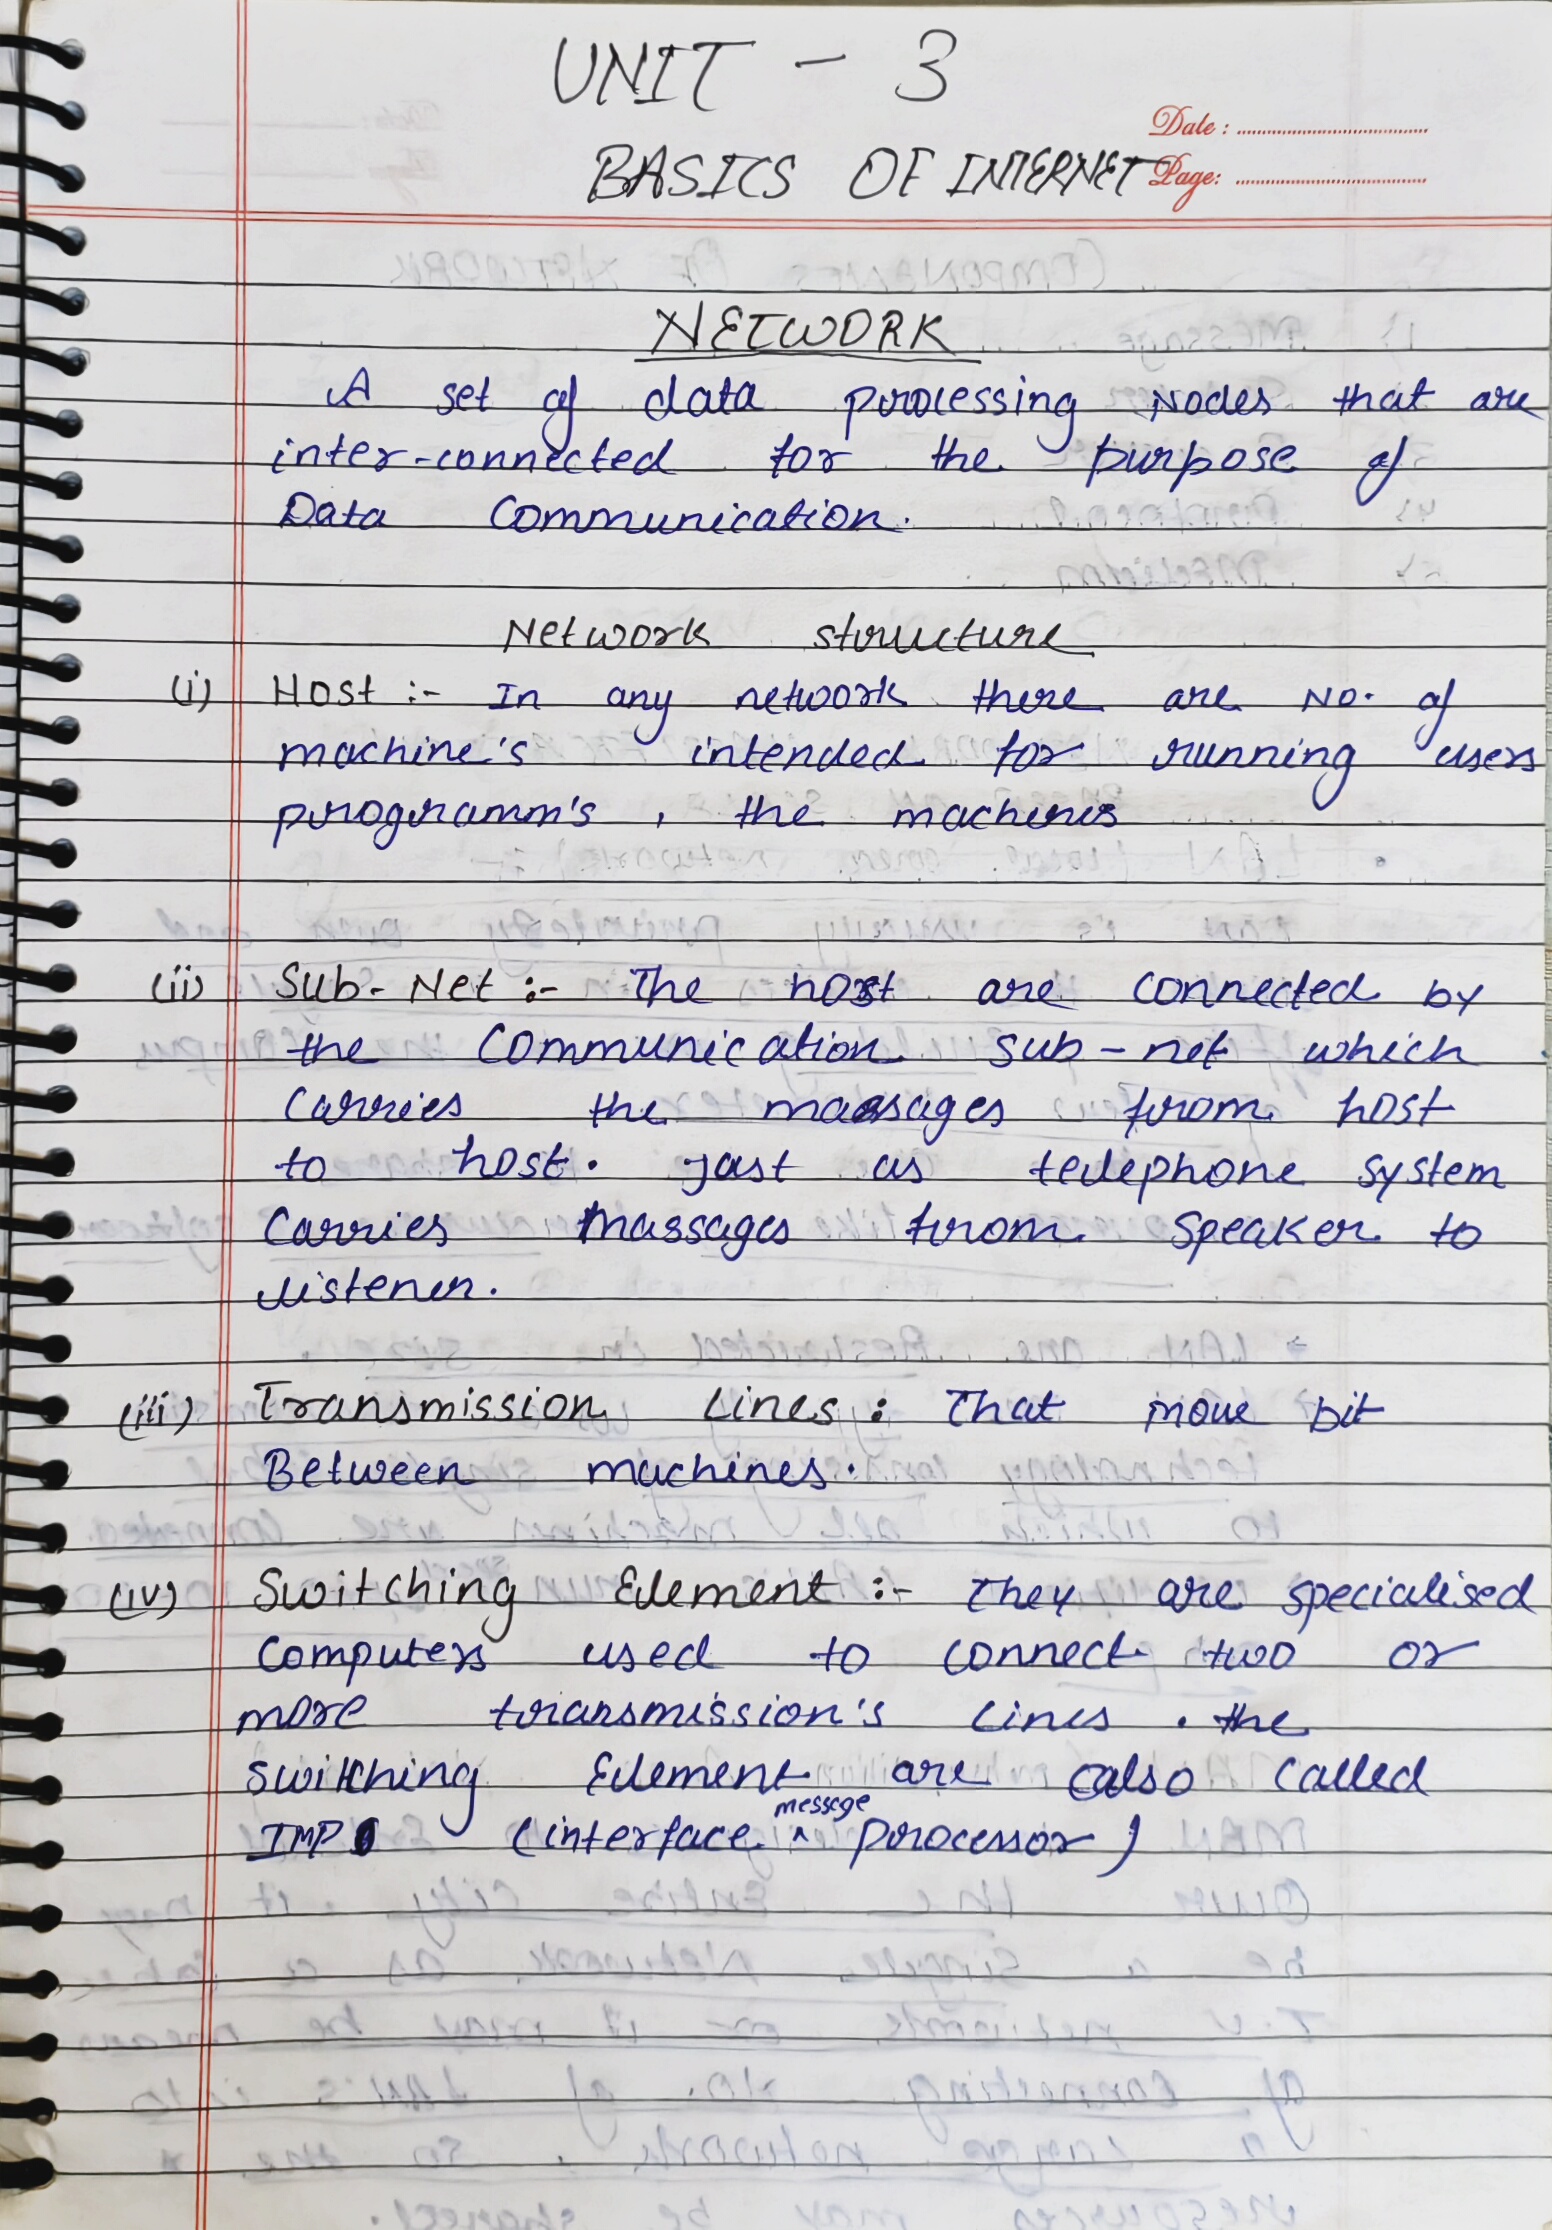 UNIT - 3
Date :
BASICS OF INTERNET
Page:
NETWORK
A set of data processing Nodes that are
inter-connected for the purpose of
Data Communication.
Network structure
(i) Host :- In any network there are No. of
machine's intended for running users
programm's , the machines
(ii) Sub-Net :- The host are connected by
the Communication sub-net which
Carries the massages from host
to host. Jast as telephone system
Carries Massages from Speaker to
listener.
(iii) Transmission Lines : That move bit
Between machines.
(iv) Switching Element :- They are specialised
Computers used to connect two or
more transmission's Lines . the
Switching Element are also Called
IMP (interface ^ message processor)